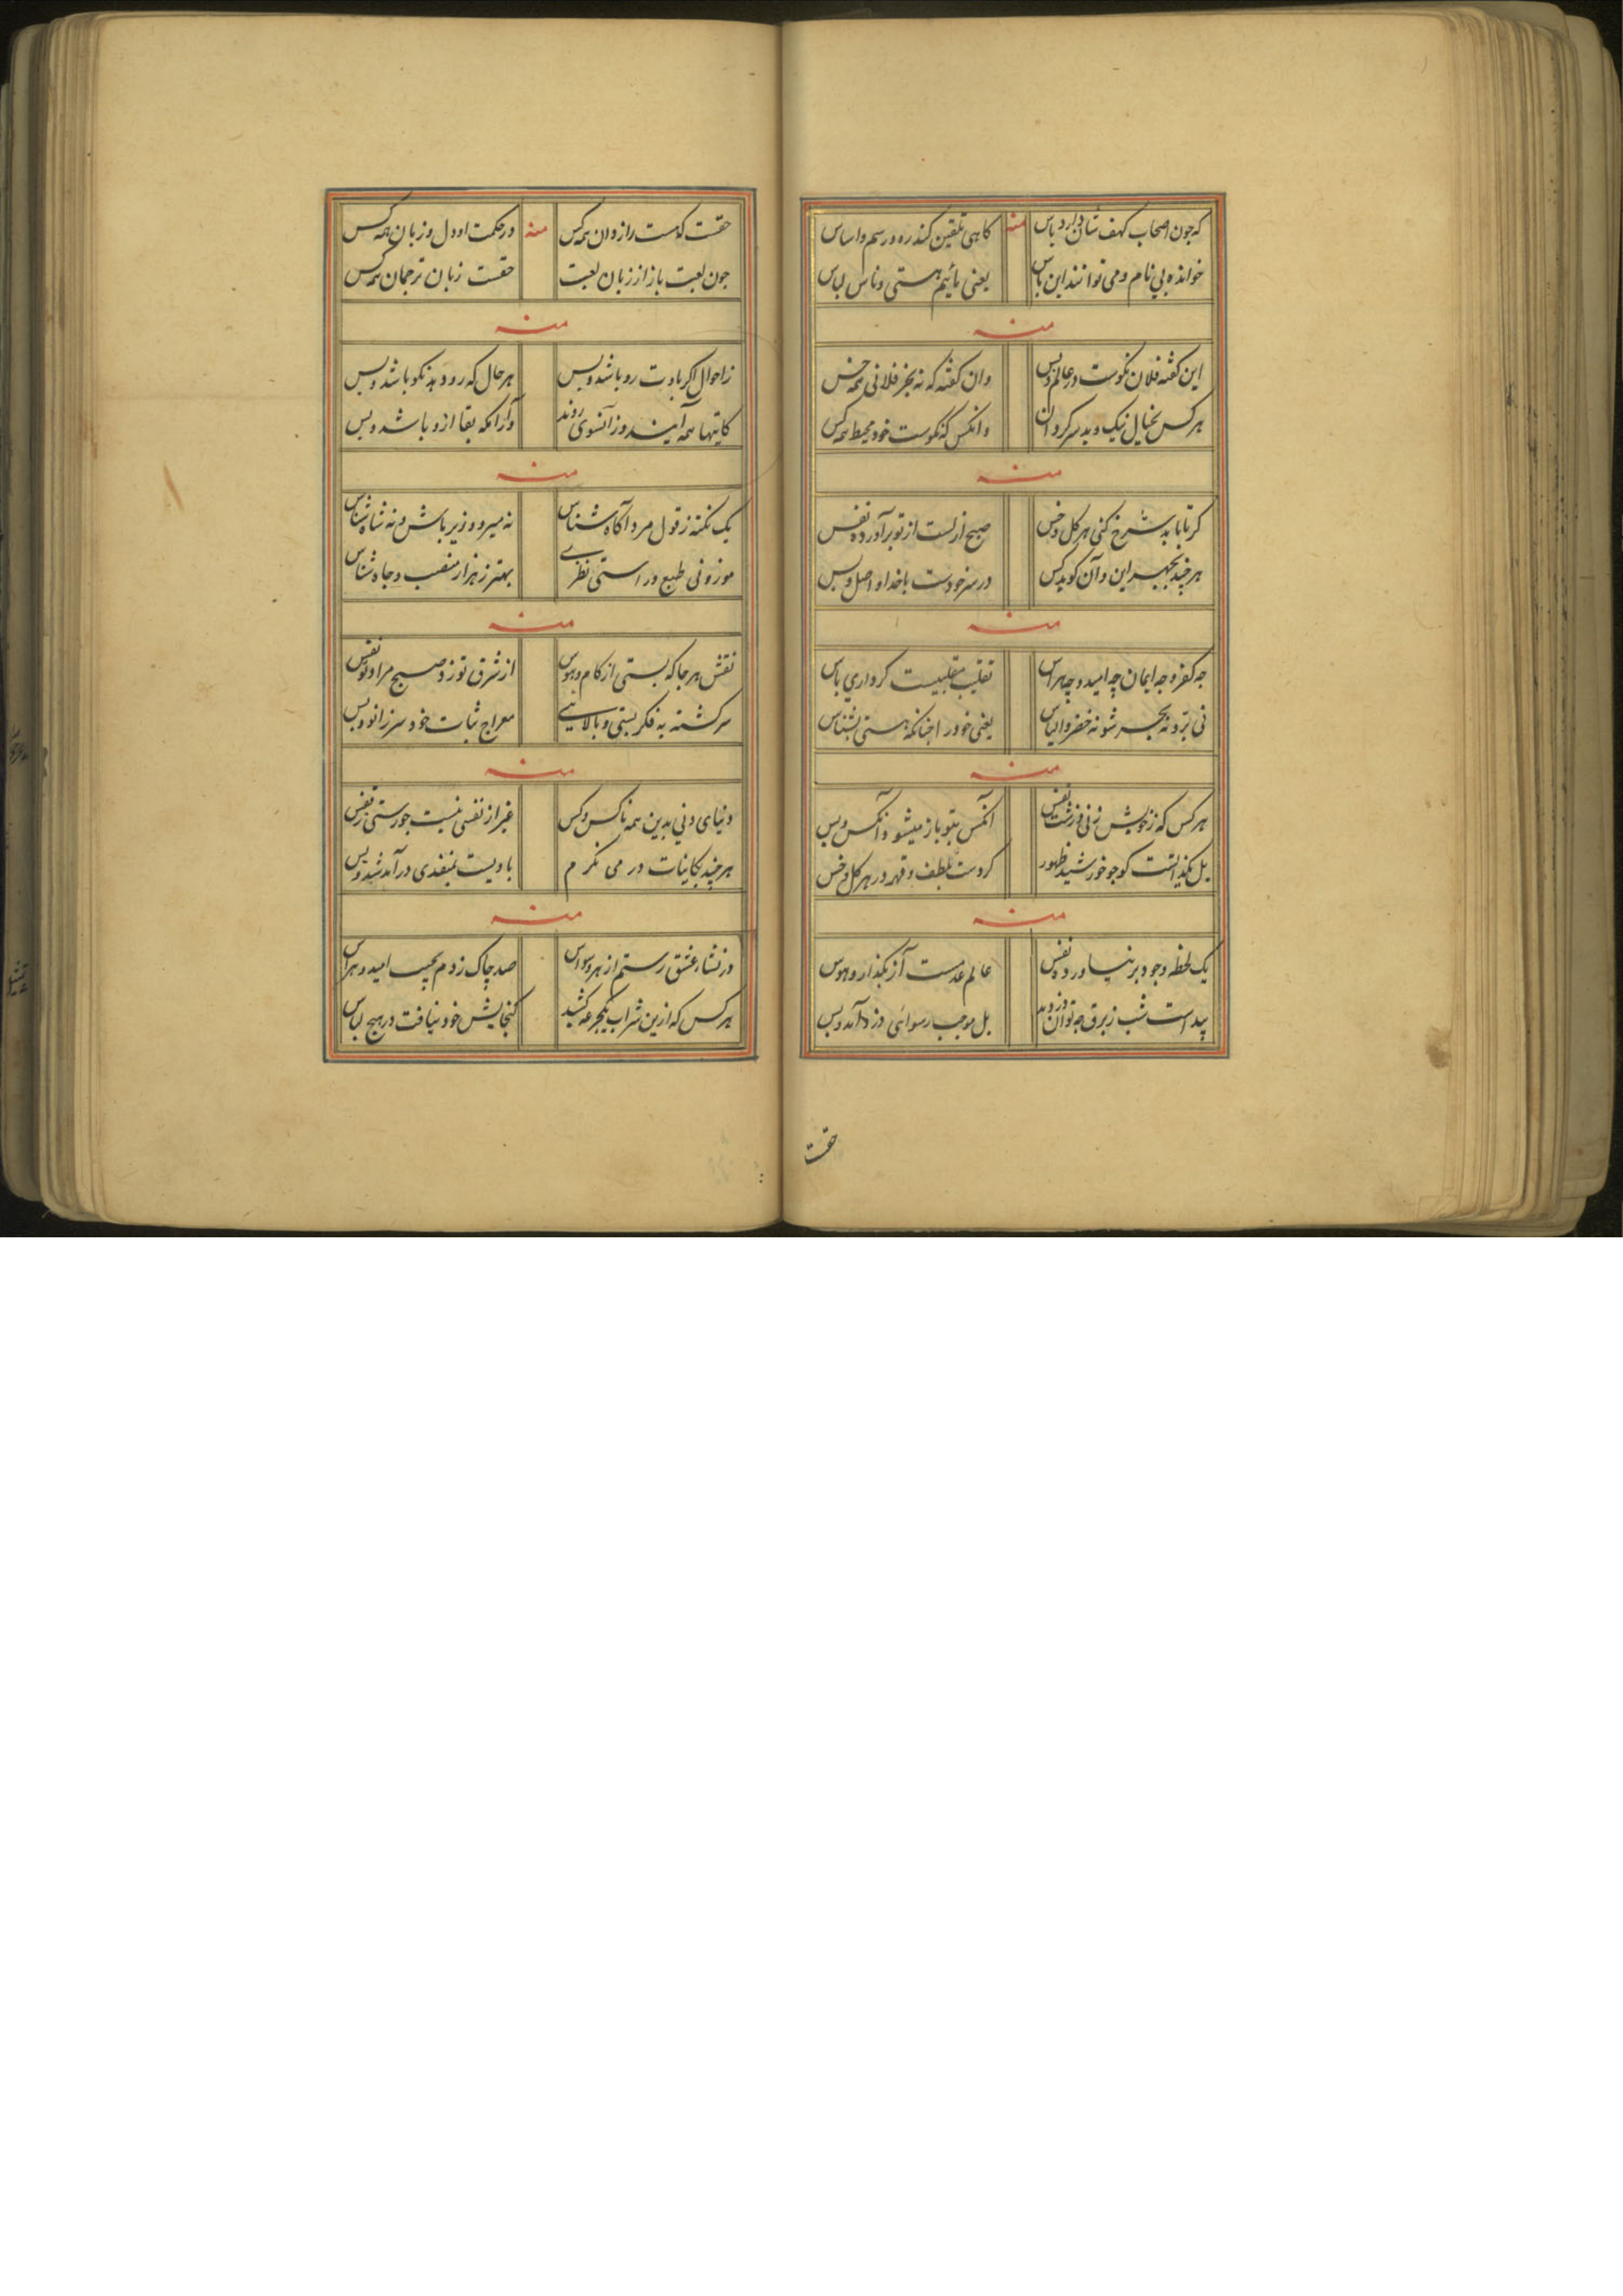 که چون اصحاب کهف شانی دارد پاس منه کاهی تلقین کند ره و رسم و اساس
خوانده بی نام و می توانند این باس یعنی مائیم هستی و ناس لباس
منه
این گفته فلان نکوست در عالم و بس وان گفته که نه بجز فلانی همه خس
هر کس بخیال نیک و بد سرکردان وانکس که نکوست خود محیط همه کس
منه
کر تا بابد شرح کنی هر کل و خس صبح ازلست از تو برآورده نفس
هر چند بجهر این و آن کوید کس در سر خودست با خدا واصل و بس
منه
چه کفر و چه ایمان چه امید و چه هراس تقلیب مقلبیست کر داری پاس
نی بر و نه بحر شو نه خضر و الیاس یعنی خود را چنانکه هستی بشناس
منه
هر کس که ز خویش زنی و زشت نفس آنکس بتو باز میشود آنکس و بس
بل نکذاشت کو چو خورشید ظهور کردست بلطف و قهر در هر کل و خس
منه
یک لحظه وجود بر نیاورده نفس عالم عدمست آز بکذار و هوس
پیداست شب ز برق چه توان دزدید بل موجب رسوائی دزد آمد و بس
حقست
حقست که هست رازدان همه کس منه در حکمت او دل و زبان همه کس
چون لعبت باز از زبان لعبت حقست زبان ترجمان همه کس
منه
ز احوال اکر بادت رو باشد و بس هر حال که رو دهد نکو باشد و بس
کاینها همه آیند وز آنسوی روند وآنرا که بقا ازو باشد و بس
منه
یک نکته ز قول مرد آکاه شناس نه میر و وزیر باش و نه شاه شناس
موزونی طبع و راستی نظری بهتر ز هزار منصب و جاه شناس
منه
نقش هر جا که بستی از کام و هوس از شرق تو زد صبح مراد تو نفس
سرکشته به فکر پستی و بالایی معراج ثبات خود سر زانو و بس
منه
دنیای دنی بدین همه ناکس و کس غیر از نفسی نیست چو رستی ز نفس
هر چند بکاینات در می نکرم بادیست بمنفذی درآمد شد و بس
منه
در نشاء عشق رستم از هر وسواس صد چاک زدم بجیب امید و هراس
هر کس که ازین شراب یکجرعه کشید کنجایش خود نیافت در هیچ لباس